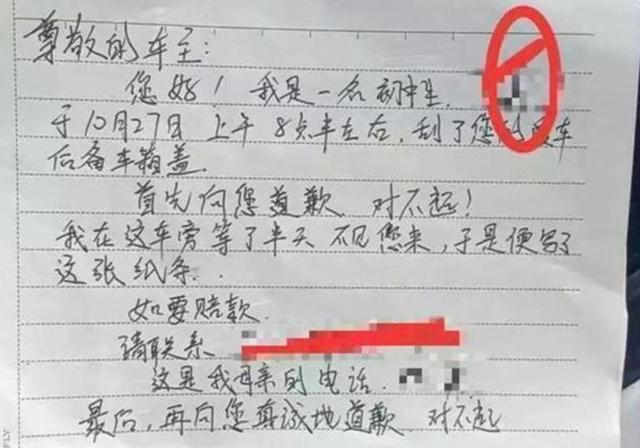 尊敬的车主：
您好！我是一名初中生，
于10月27日上午8点半左右，刮了您的 车
后备车箱盖．
首先向您道歉 对不起！
我在这车旁等了半天 不见您来，于是便写了
这张纸条．
如要赔款．
请联系
这是我母亲的电话．
最后，再向您真诚地道歉 对不起